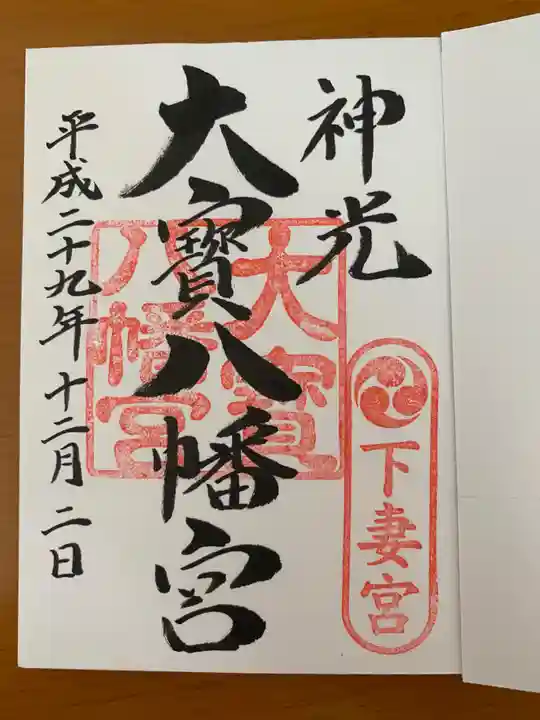 神光
下妻宮
大寶八幡宮
大寶
八幡宮
平成二十九年十二月二日